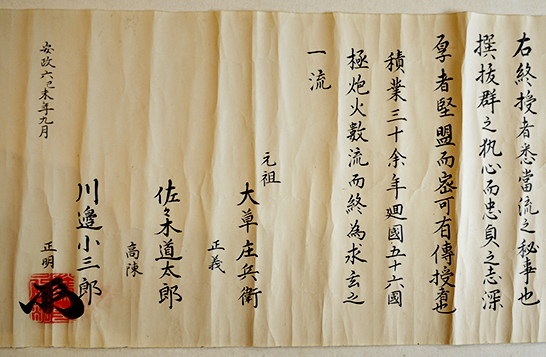 右終授者悉當流之秘事也
撰抜群之执心而忠貞之志深
厚者堅盟而密可有傳授者也
積業三十余年廻國五十六國
極炮火数流而終為求玄之
一流
元祖
大草庄兵衛
正義
佐々木道太郎
高陳
川邉小三郎
正明
安政六己未年九月